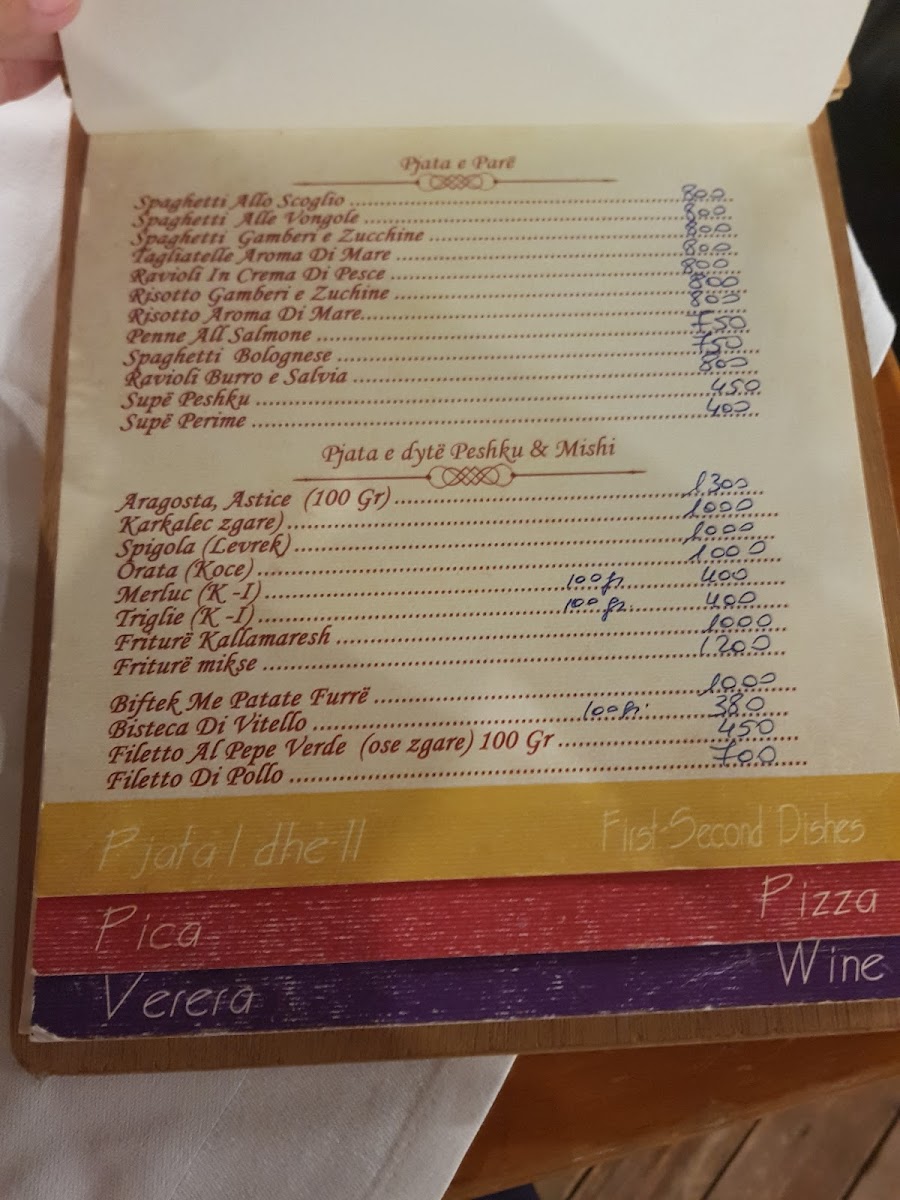 Pjata e Parë
Spaghetti Allo Scoglio 800
Spaghetti Alle Vongole 800
Spaghetti Gamberi e Zucchine 800
Tagliatelle Aroma Di Mare 800
Ravioli In Crema Di Pesce 800
Risotto Gamberi e Zuchine 800
Risotto Aroma Di Mare 800
Penne All Salmone 750
Spaghetti Bolognese 750
Ravioli Burro e Salvia 800
Supë Peshku 450
Supë Perime 400
Pjata e dytë Peshku & Mishi
Aragosta, Astice (100 Gr) 1300
Karkalec zgare) 1000
Spigola (Levrek) 1000
Orata (Koce) 1000
Merluc (K -I) 100 gr. 400
Triglie (K -I) 100 gr. 400
Friturë Kallamaresh 1000
Friturë mikse 1200
Biftek Me Patate Furrë 1000
Bisteca Di Vitello 100 gr. 380
Filetto Al Pepe Verde (ose zgare) 100 Gr 450
Filetto Di Pollo 700
Pjata I dhe II First-Second Dishes
Pica Pizza
Verera Wine